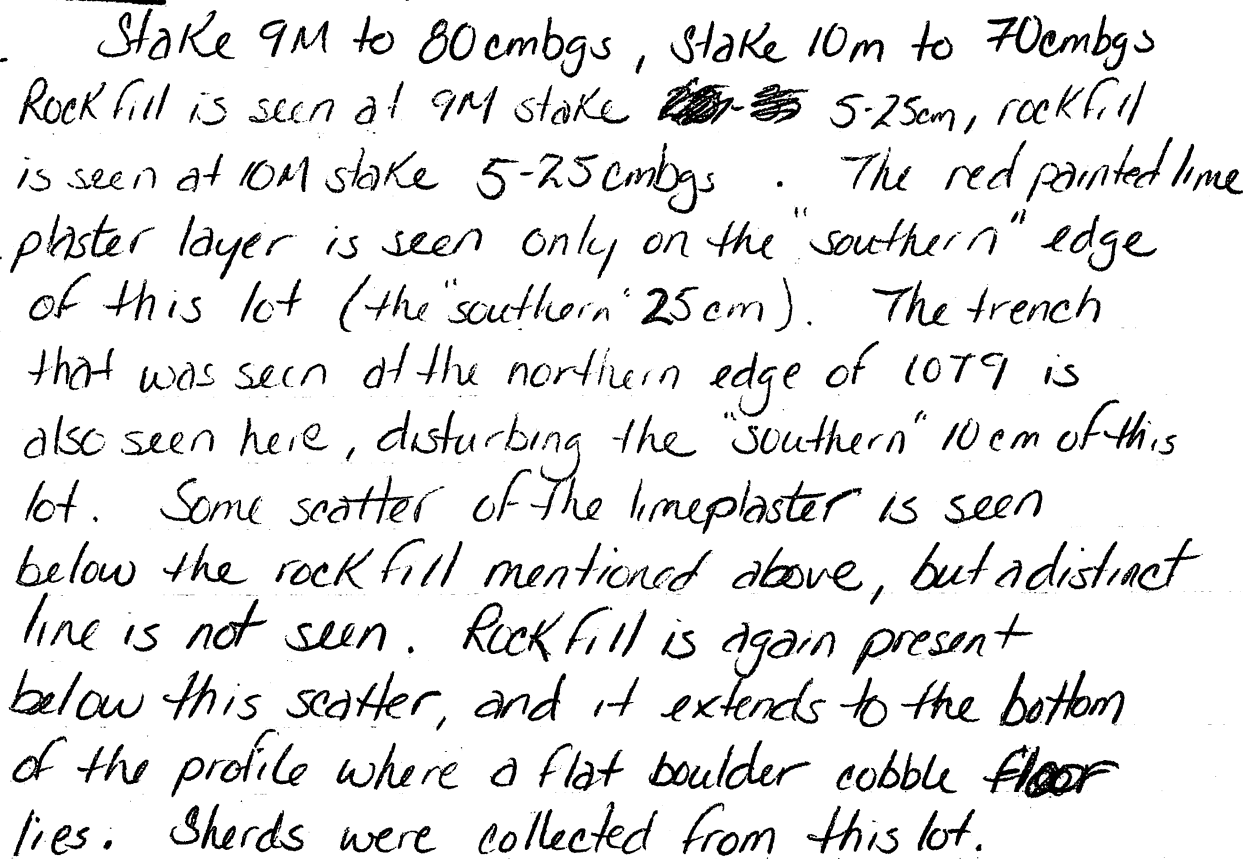 Stake 9M to 80cmbgs, Stake 10m to 70cmbgs
Rock fill is seen at 9M stake 5-25cm, rock fill
is seen at 10M stake 5-25cmbgs . The red painted lime
plaster layer is seen only on the "southern" edge
of this lot (the "southern" 25cm). The trench
that was seen at the northern edge of 10T9 is
also seen here, disturbing the "southern" 10cm of this
lot. Some scatter of the limeplaster is seen
below the rock fill mentioned above, but a distinct
line is not seen. Rock fill is again present
below this scatter, and it extends to the bottom
of the profile where a flat boulder cobble floor
lies. Sherds were collected from this lot.